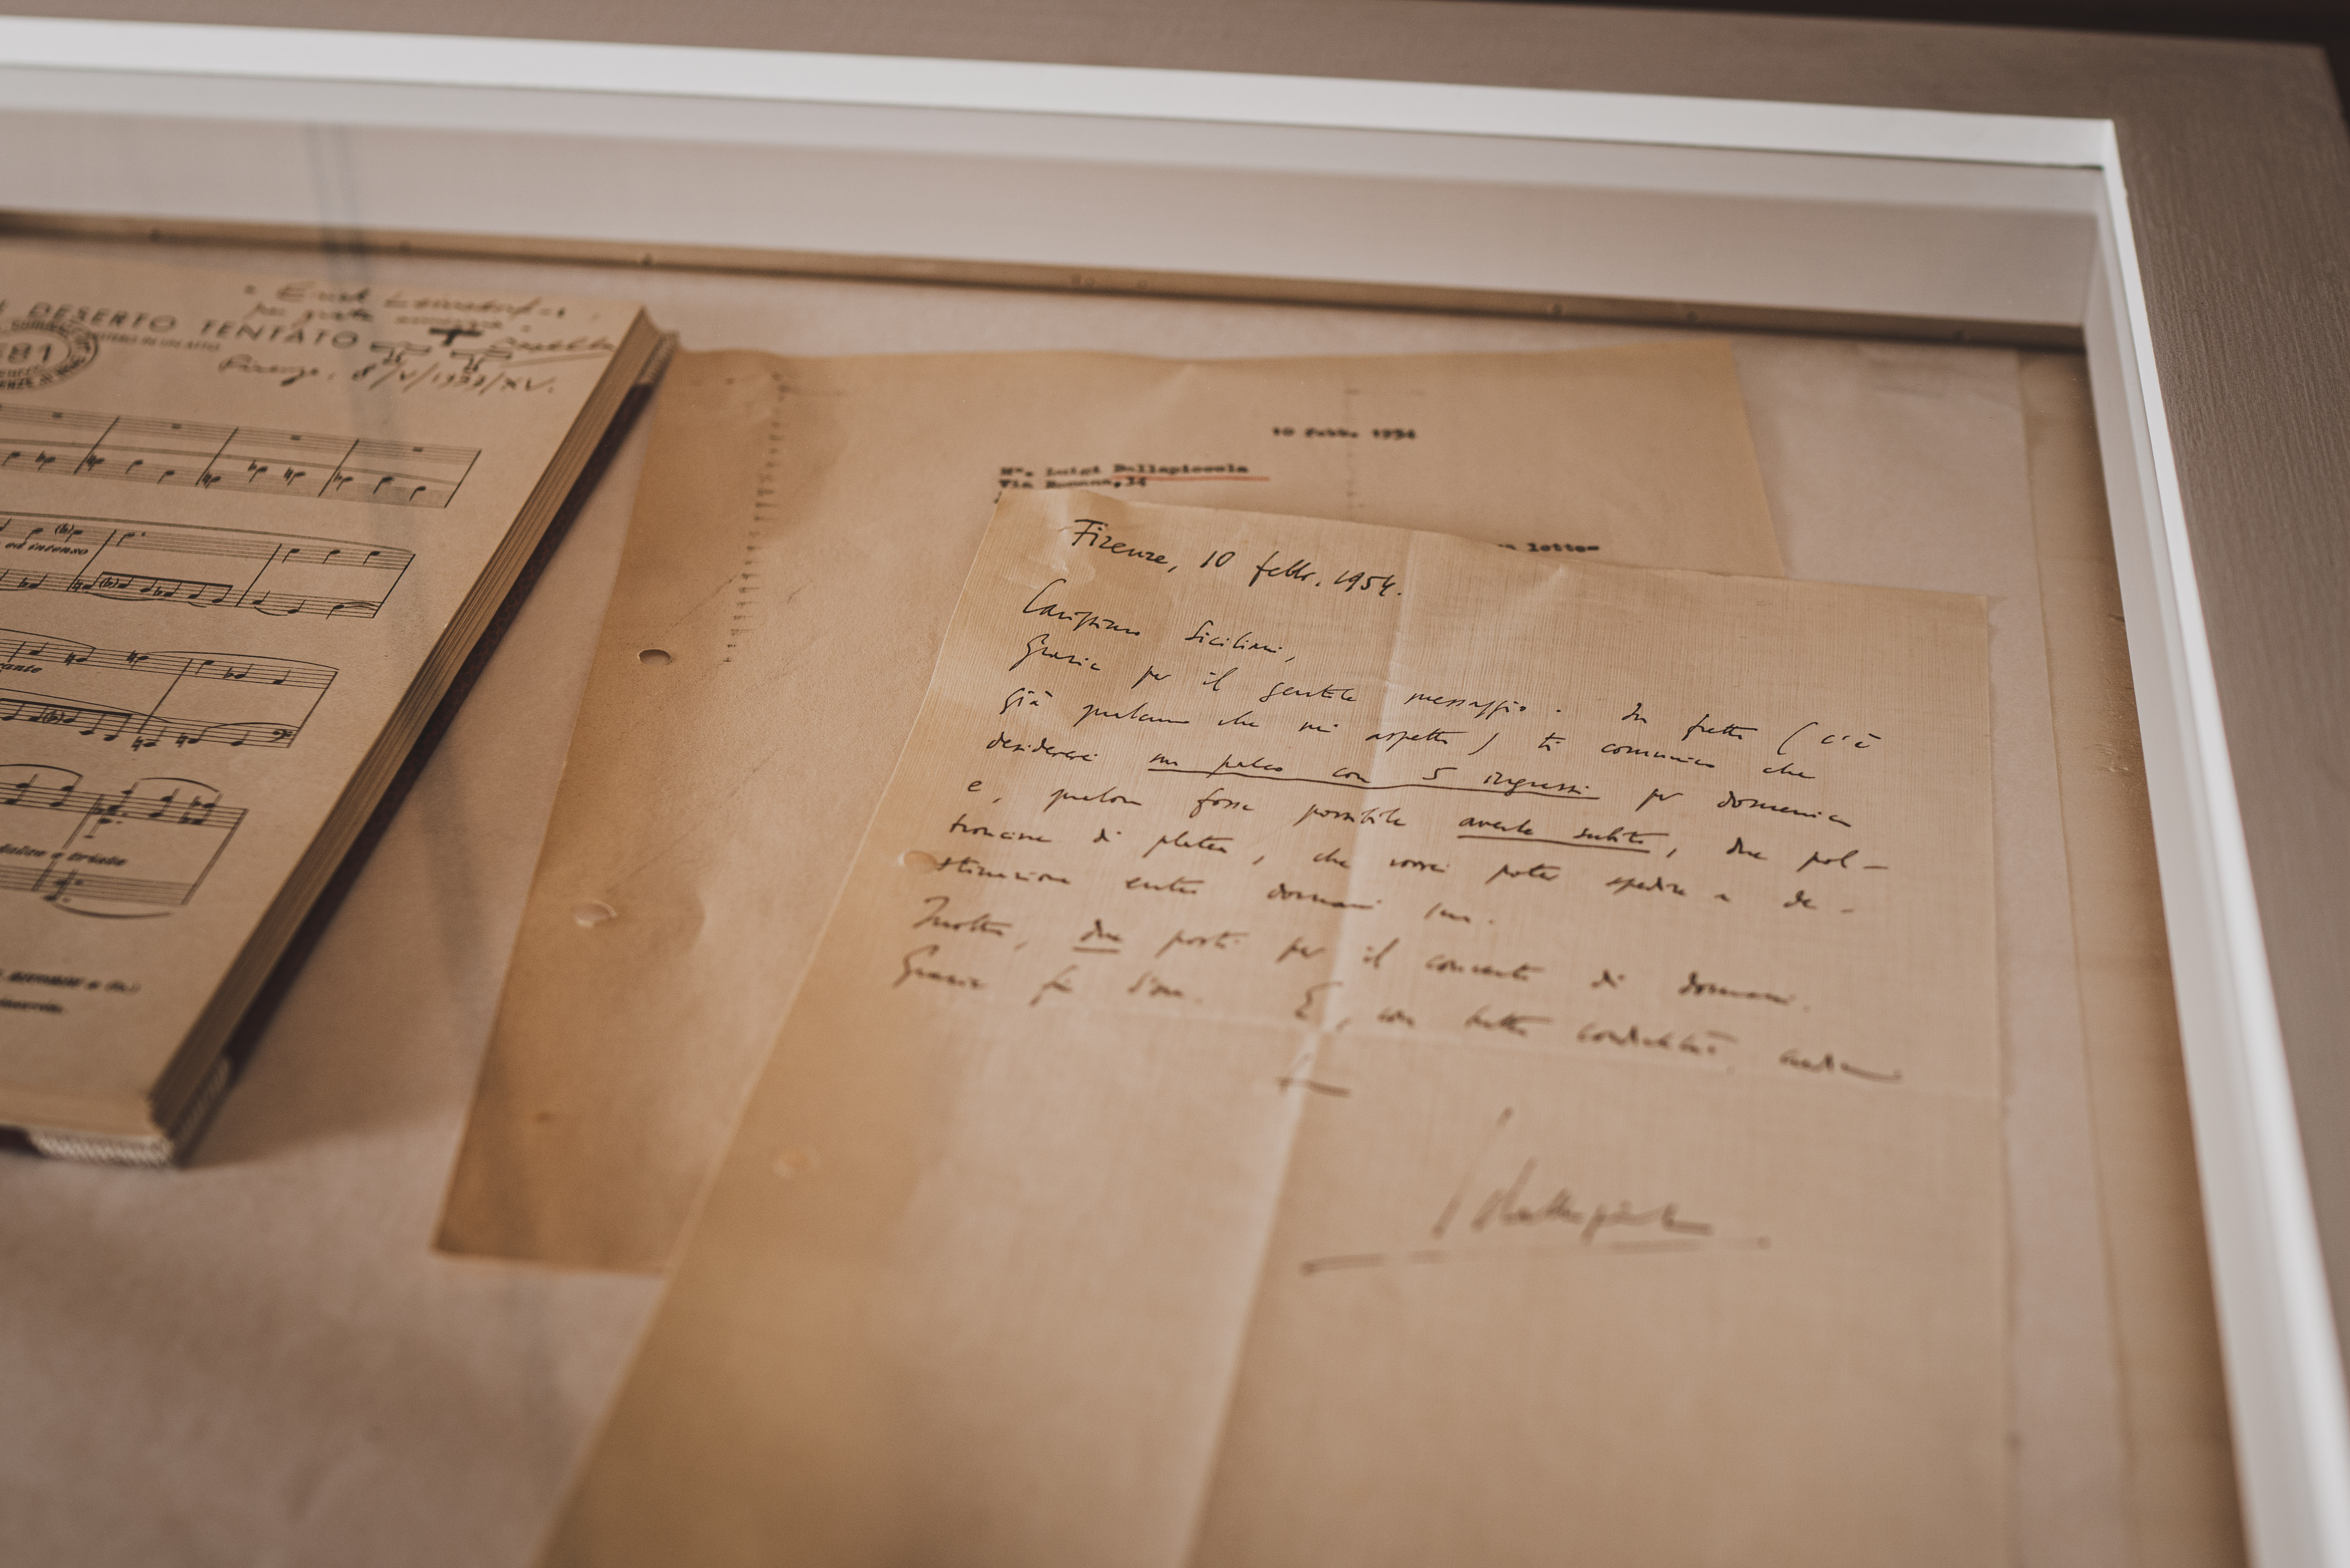 DESERTO TENTATO
MISTERO IN UN ATTO
81
Firenze, 8/V/1937/XV.
ed intenso
dolce e triste
10 febb. 1954
M°. Luigi Dallapiccola
Via Romana, 34
lotto=
Firenze, 10 febbr. 1954.
Carissimo Siciliani,
Grazie per il gentile messaggio. In fretta (c'è
già qualcuno che mi aspetta) ti comunico che
desidererei un palco con 5 ingressi per domenica
e, qualora fosse possibile averle subito, due pol-
troncine di platea, che vorrei poter spedire a de-
stinazione entro domani sera.
Inoltre, due posti per il concerto di domani.
Grazie fin d'ora. E, con tutta cordialità, credimi
Dallapiccola